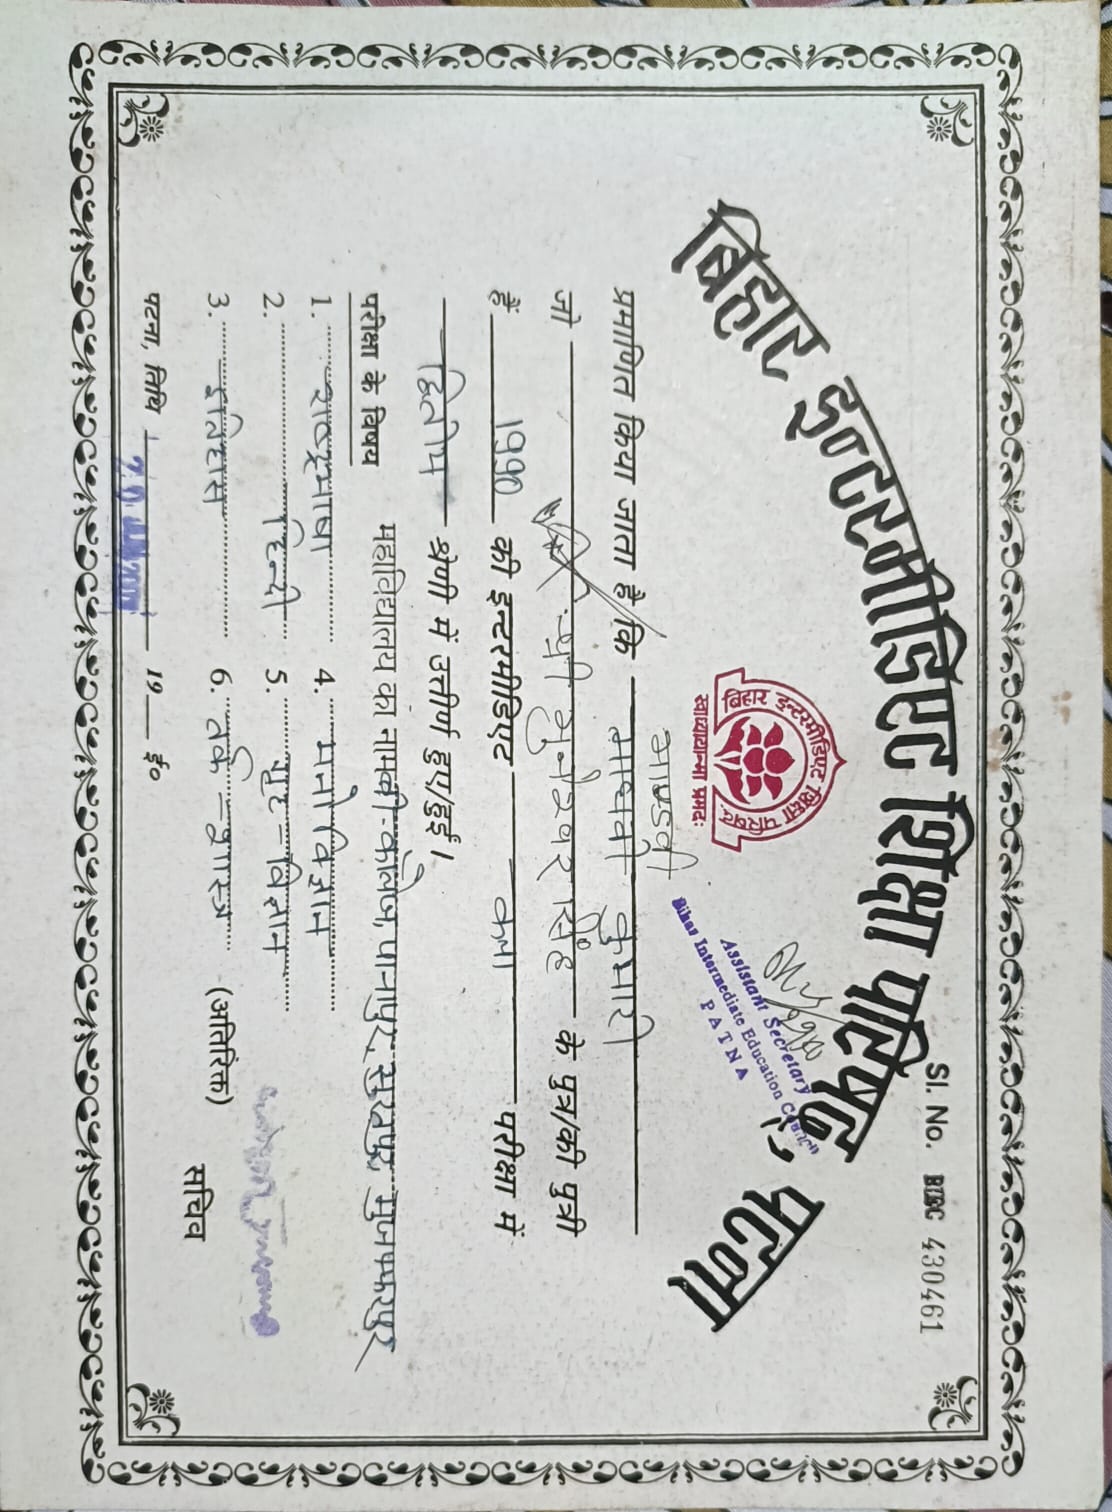 Sl. No. BIEC 430461
बिहार इन्टरमीडिएट शिक्षा परिषद्, पटना
बिहार इन्टरमीडिएट शिक्षा परिषद्
स्वाध्यायान्मा प्रमदः
Assistant Secretary
Bihar Intermediate Education Council
PATNA
माण्डवी
प्रमाणित किया जाता है कि माधवी कुमारी
जो श्री मुनेश्वर सिंह के पुत्र/की पुत्री
हैं 1990 की इन्टरमीडिएट कला परीक्षा में
द्वितीय श्रेणी में उत्तीर्ण हुए/हुई।
महाविद्यालय का नाम
परीक्षा के विषय
1. राष्ट्रभाषा 4. मनोविज्ञान
2. हिन्दी 5. गृह-विज्ञान
3. इतिहास 6. तर्क-शास्त्र (अतिरिक्त)
सचिव
पटना, तिथि 19 ई०